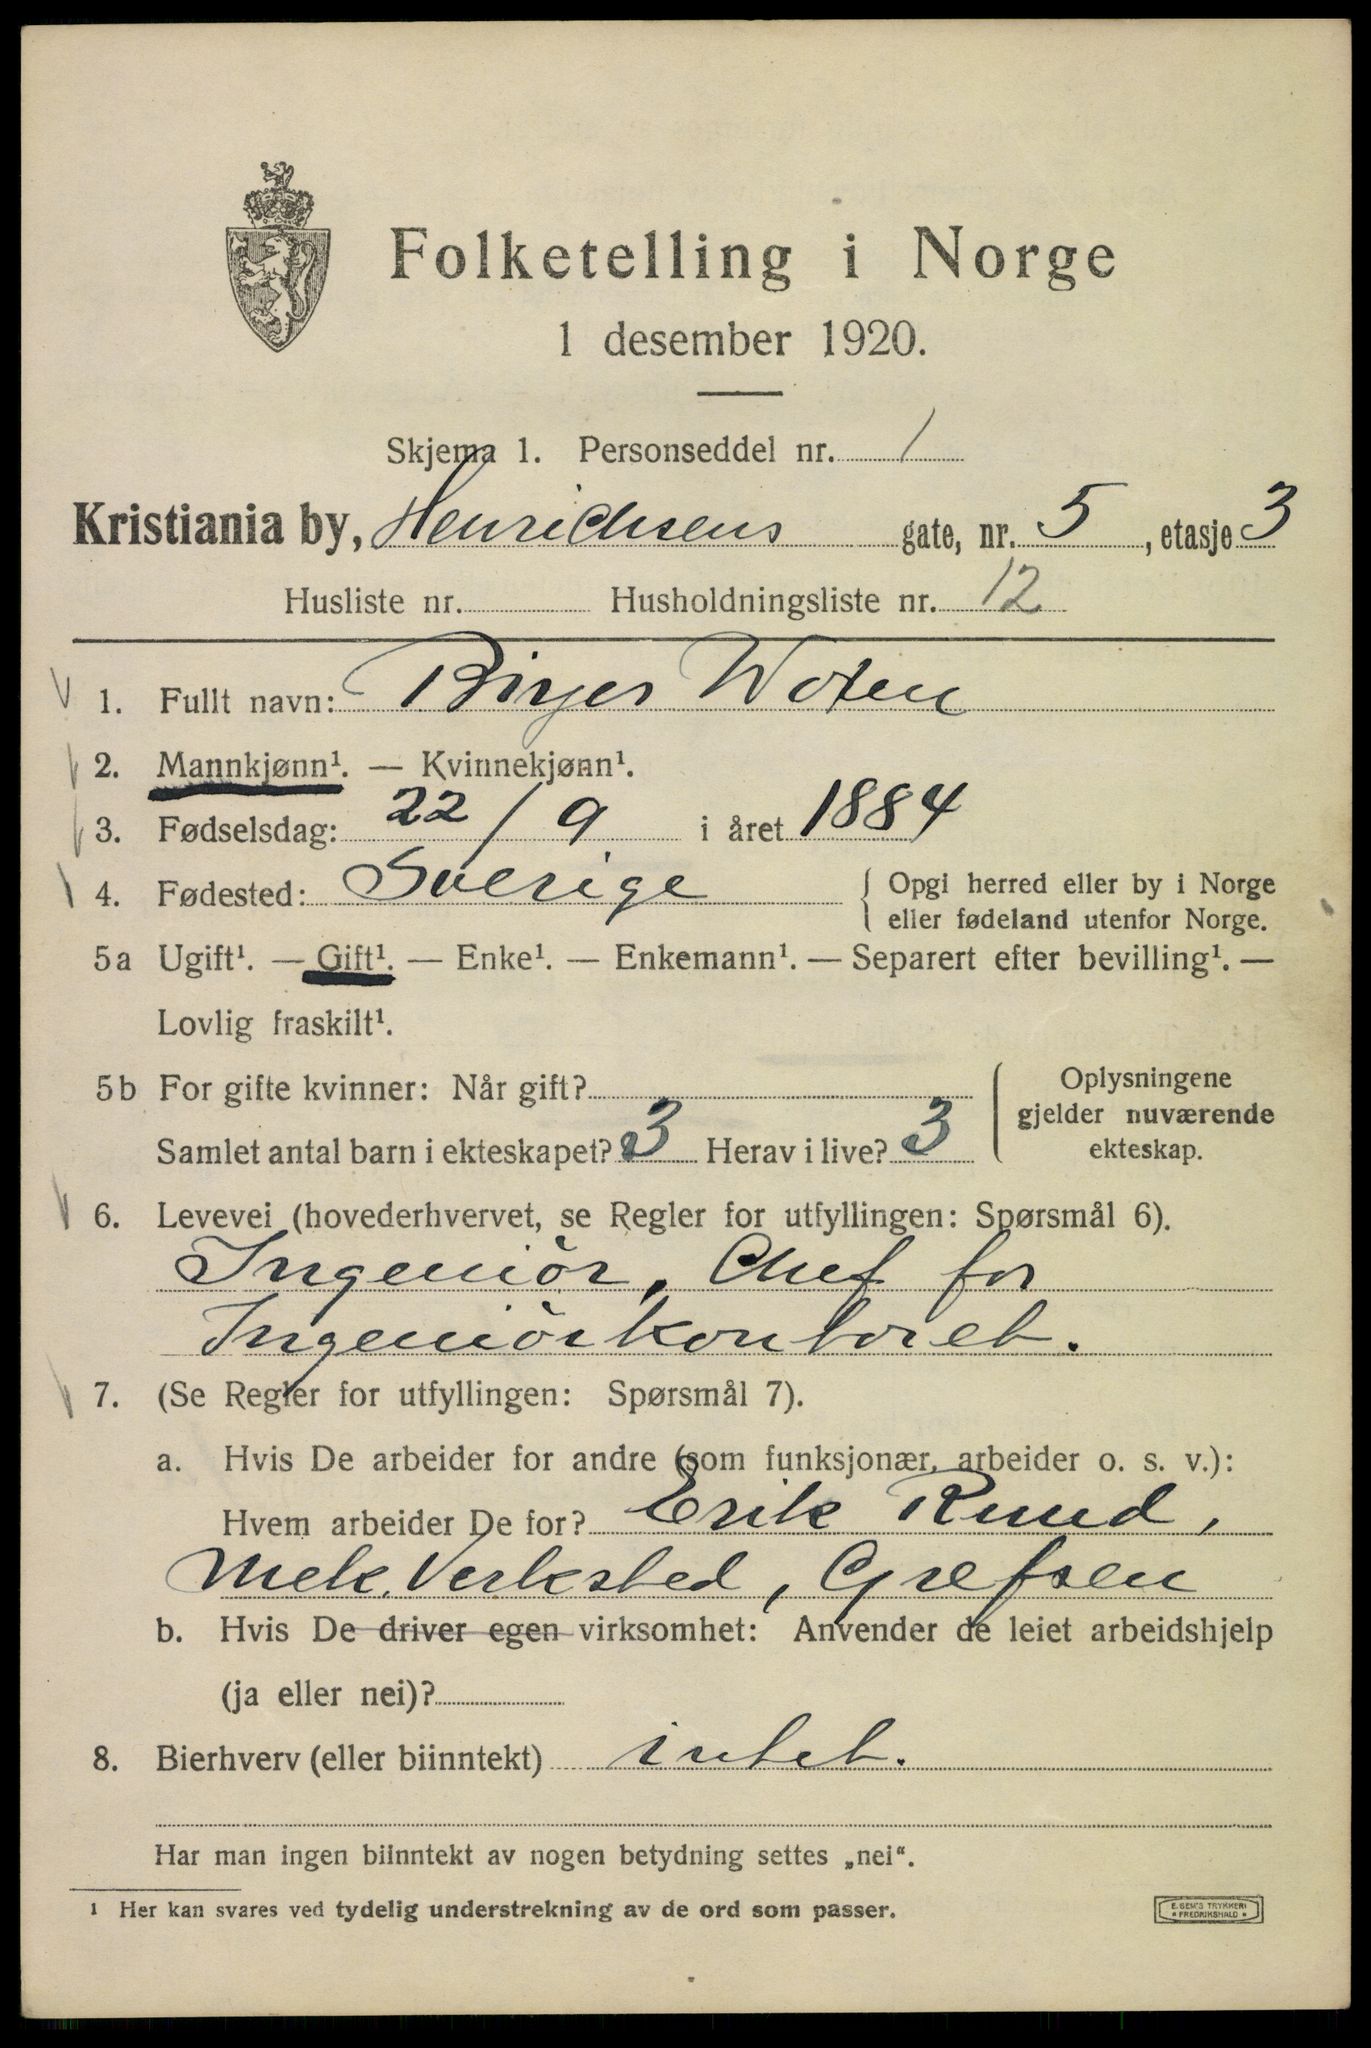 Folketelling i Norge
1 desember 1920.
Skjema 1. Personseddel nr. 1
Kristiania by, Henrichsens gate, nr. 5, etasje 3
Husliste nr. Husholdningsliste nr. 12
1. Fullt navn: Birger Woxen
2. Mannkjønn¹. — Kvinnekjønn¹.
3. Fødselsdag: 22/9 i året 1884
4. Fødested: Sverige { Opgi herred eller by i Norge
eller fødeland utenfor Norge.
5a Ugift¹. — Gift¹. — Enke¹. — Enkemann¹. — Separert efter bevilling¹. —
Lovlig fraskilt¹.
5b For gifte kvinner: Når gift?
Samlet antal barn i ekteskapet? 3 Herav i live? 3
Oplysningene
gjelder nuværende
ekteskap.
6. Levevei (hovederhvervet, se Regler for utfyllingen: Spørsmål 6).
Ingeniör, Chef for
Ingeniörkontoret.
7. (Se Regler for utfyllingen: Spørsmål 7).
a. Hvis De arbeider for andre (som funksjonær, arbeider o. s. v.):
Hvem arbeider De for? Erik Ruud,
Mek. Verksted, Grefsen
b. Hvis De driver egen virksomhet: Anvender de leiet arbeidshjelp
(ja eller nei)?
8. Bierhverv (eller biinntekt) intet.
Har man ingen biinntekt av nogen betydning settes „nei“.
1 Her kan svares ved tydelig understrekning av de ord som passer.
E. SEM'S TRYKKERI
* FREDRIKSHALD *